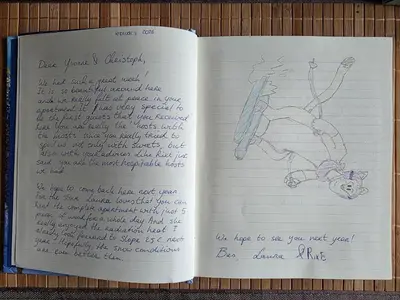 Dear Yvonne & Christoph,
We had such a great week!
It is so beautiful around here
and we really felt at peace in your
apartment. It was very special to
be the first guests that you received
here. You are really the hosts with
the since you really tried to
spoil us not only with sweets, but
also with your advices. Like Rick just
said: you are the most hospitable hosts
we had.
We hope to come back here next year
for the ski. Laura loves that you can
heat the complete apartment with just 5
pieces of wood for a whole day. And she
really enjoyed the radiation heat!
already look forward to slope 252 next
year! Hopefully the snow conditions
are even better then.
We hope to see you next year!
Laura & Rick